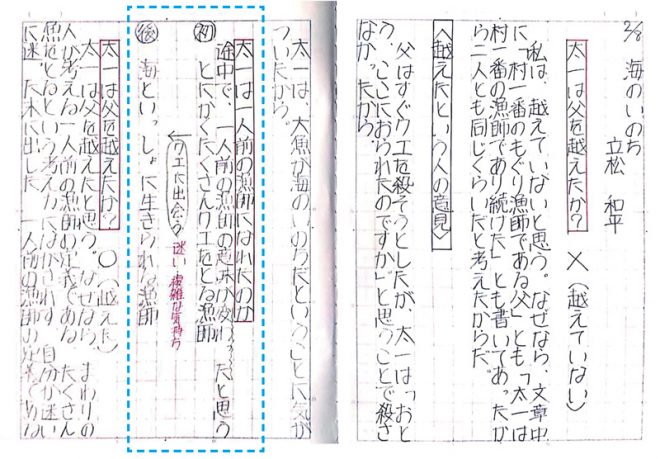 2/8 海のいのち
立松 和平
太一は父を越えたか? × (越えていない)
私は、越えていないと思う。なぜなら、文章中
に「村一番のもぐり漁師である父」とも「太一は
村一番の漁師であり続けた」とも書いてあったか
ら二人とも同じくらいだと考えたからだ。
〈越えたという人の意見〉
父はすぐクエを殺そうとしたが、太一は「おと
う、ここにおられたのですか」と思うことで殺さ
なかった。
太一は、大魚が海のいのちだということに気が
ついたから。
太一は一人前の漁師になれたのか
途中で、一人前の漁師の意味が変わったと思う
初 とにかくたくさんクエをとる漁師
クエに出会う 迷い 複雑な気持ち
後 海といっしょに生きられる漁師
太一は父を越えたか? ○ (越えた)
太一は父を越えたと思う。なぜなら、まわりの
人が考える一人前の漁師の定義である、たくさん
魚をとるという考えにまどわされず、自分が迷い
に迷った末に出した一人前の漁師の定義である